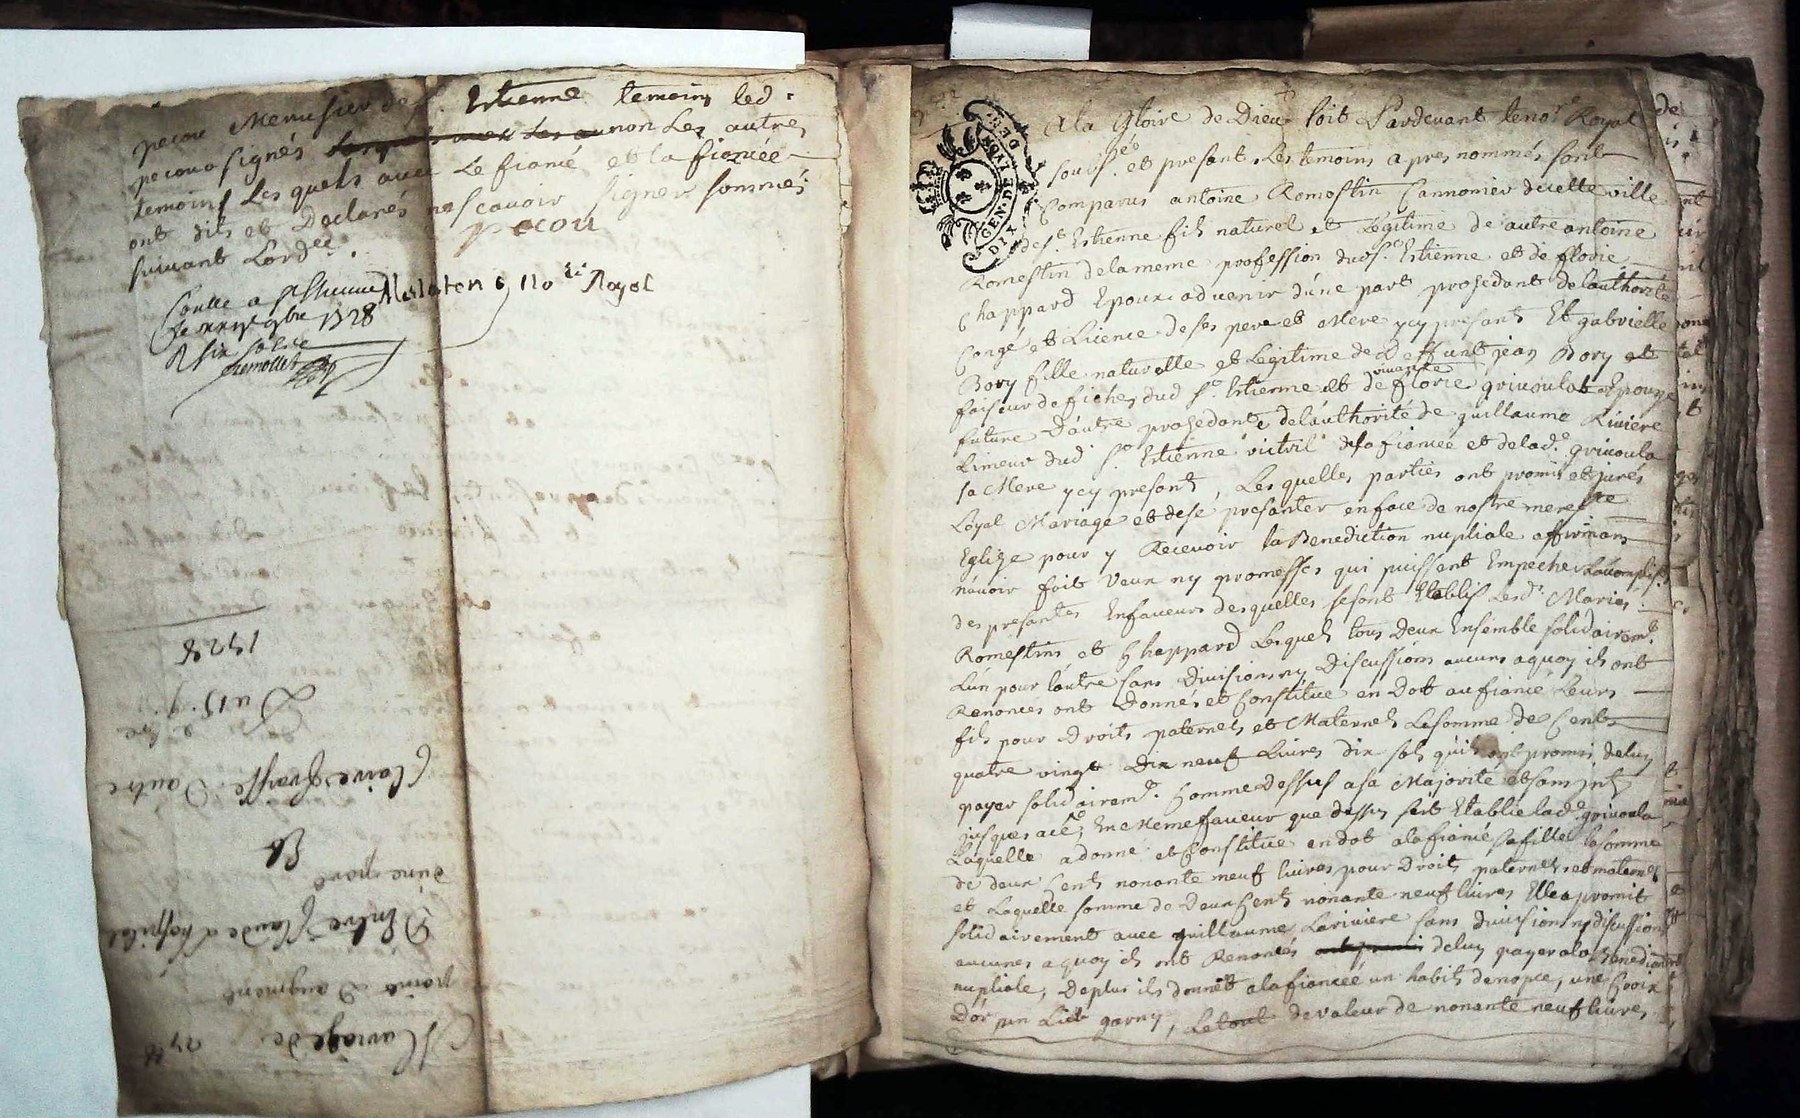 pecou Menusier de S. Estienne temoins led.
pecou signés non les autres
temoins lesquels avec le fiancé et la fiancée
ont dits et Declarés ne scavoir signer sommés
suivant Lord.ce.
pecou
No.re Royal
1728
1728
Du 15.
Claire d'autre
Et
d'une part
D'Entre Claude
point d'augment
Mariage de
GEN. DE LYON
DIX DEN.
A la Gloire de Dieu soit Pardevant le no.re Royal
soubs.é et presant Les temoins apres nommés sont
Comparus antoine Romestin Cannonier de cette ville
de S.t Estienne fils naturel et Legitime de autre antoine
Romestin de la meme profession dud S. Estienne et de florie
Chappard Epoux advenir d'une part prosedant de l'authorité
Congé et Licence de ses pere et Mere ycy presants Et gabrielle
Bory fille naturelle et Legitime de Deffunt jean Bory et
faiseur de fiches dud S.t Estienne et de vivante florie grivoulat Epouze
future D'autre prosedante de l'authorité de guillaume Riviere
Limeur dud S.t Estienne de la fiancée et de lad.e grivoula
sa Mere ycy presants, Lesquelles parties ont promis et jurés
Loyal Mariage et de se presanter en face de nostre mere s.te
Eglize pour y Recevoir la Benediction nupliale affirmans
n'avoir fait veux ny promesses qui puissent Empecher
des presantes En faveurs desquelles se sont Etablis Lesd.s Mariés
Romestins et Chappard Lesquels tous Deux Ensemble solidairem.t
L'un pour l'autre sans division ny Discussions aucuns a quoy ils ont
Renoncés ont Donnés et Constitue en Dot au fiancé Leurs
fils pour Droits paternels et Maternels La somme de Cents
quatre vingt Dix neuf Livres dix sols qu'ils ont promis de luy
payer solidairem.t Comme dessus a sa Majorite et sans jnts
jusques a ce, En Meme faveur que dessus s'est Etablie lad.e grivoula
Laquelle a donné et Constitué en dot a la fiancé sa fille la somme
de deux Cents nonante neuf livres pour Droit paternels et maternels
et Laquelle somme de Deux Cents nonante neuf livres Elle a promit
solidairement avec guillaume Lariviere sans division ny discussion
aucunes a quoy ils ont Renoncés de luy payer a la Benediction
nupliale, De plus ils donnet a la fiancée un habits de nopce, une Croix
D'or un Lit garny, Le tout de valeur de nonante neuf livres